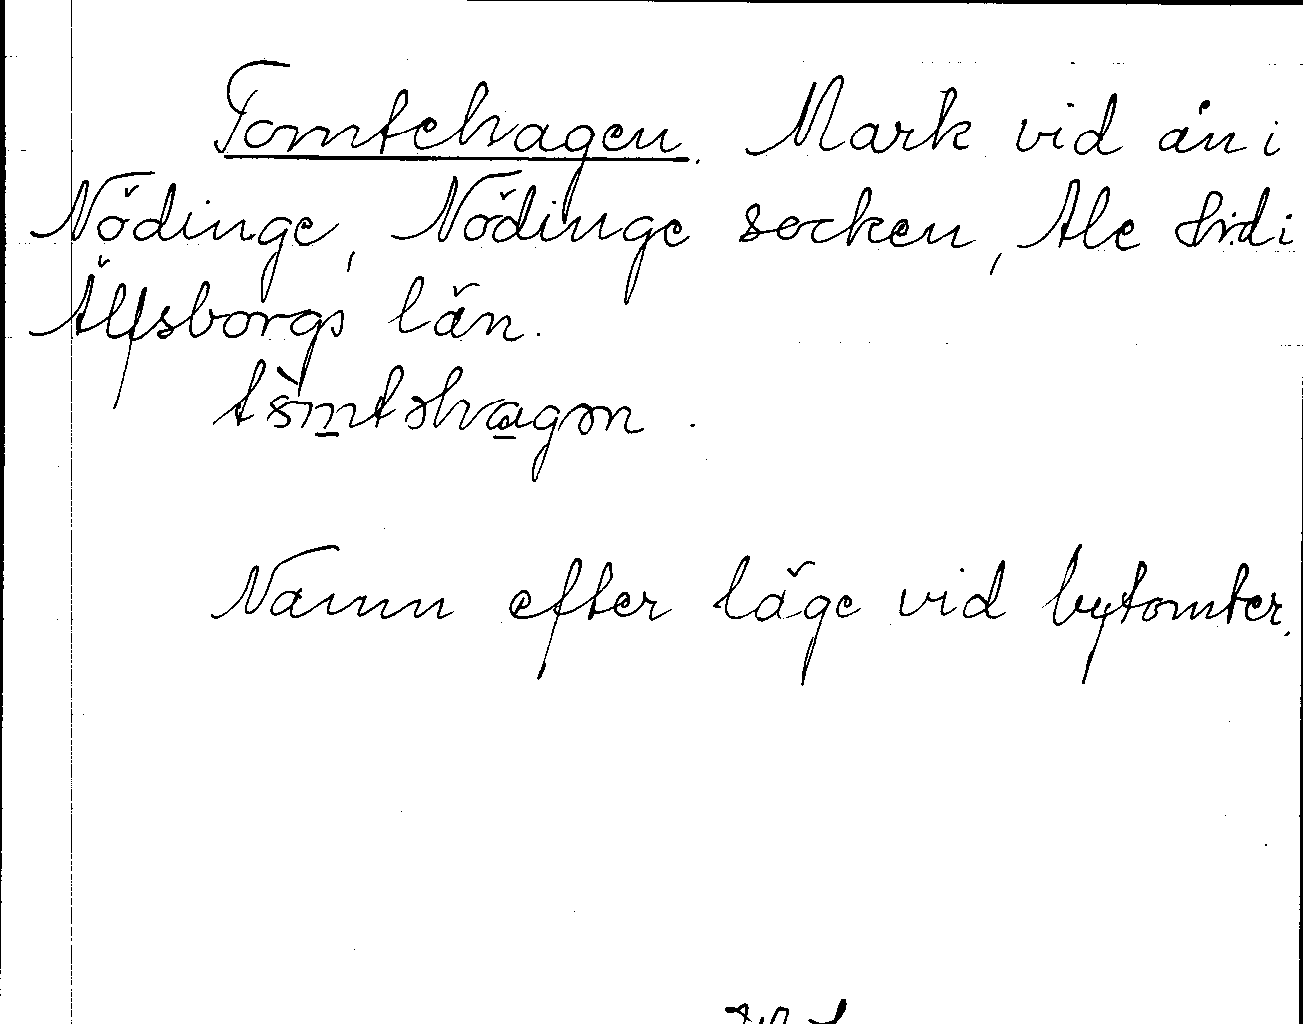 Tomtehagen. Mark vid ån i
Nödinge, Nödinge socken, Ale hrd i
Älfsborgs län.
Namn efter läge vid bytomter.